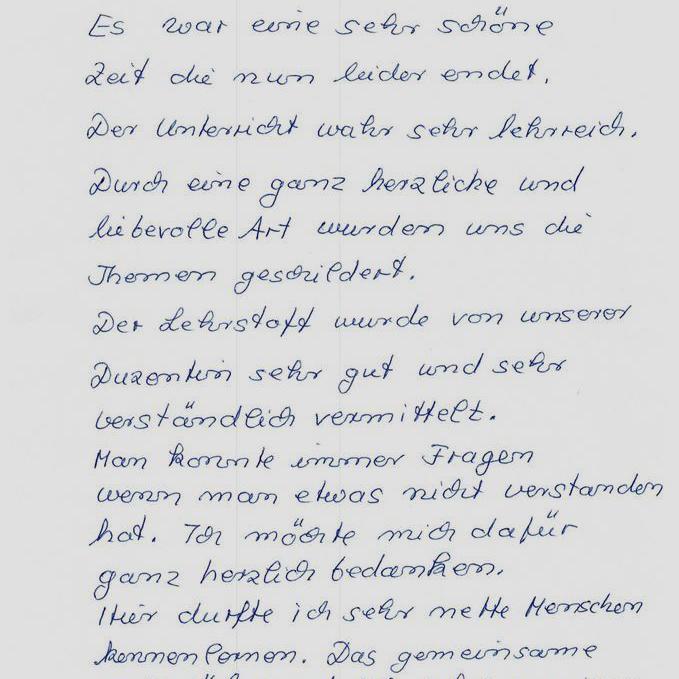 Es war eine sehr schöne
Zeit die nun leider endet.
Der Unterricht wahr sehr lehrreich.
Durch eine ganz herzliche und
liebevolle Art wurden uns die
Themen geschildert.
Der Lehrstoff wurde von unserer
Duzentin sehr gut und sehr
verständlich vermittelt.
Man konnte immer Fragen
wenn man etwas nicht verstanden
hat. Ich möchte mich dafür
ganz herzlich bedanken.
Hier durfte ich sehr nette Menschen
kennenlernen. Das gemeinsame